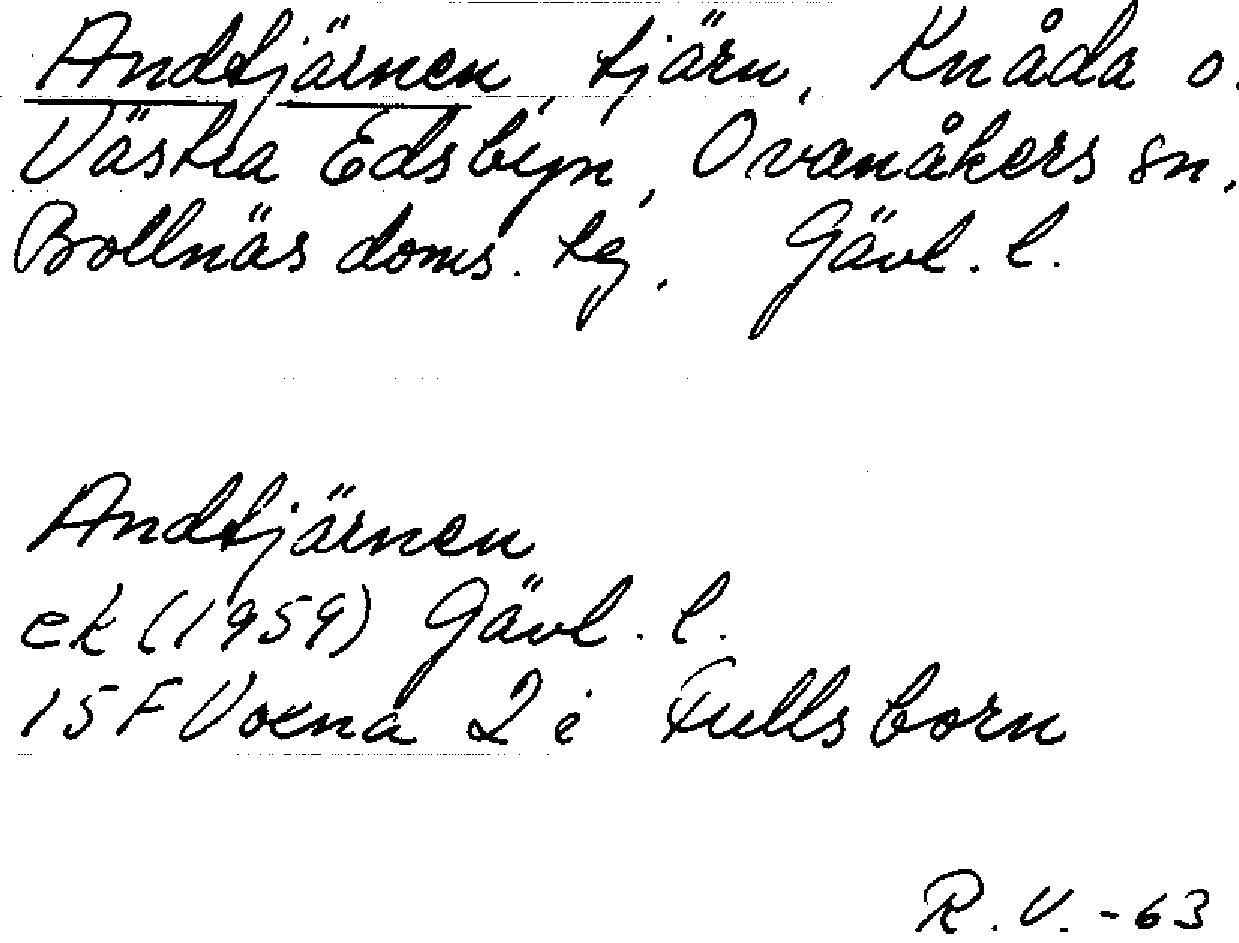 Andtjärnen, tjärn, Knåda o.
Västra Edsbyn, Ovanåkers sn,
Bollnäs doms. tg, Gävl. l.
Andtjärnen
ek (1959) Gävl. l.
15F Voxna 2i Fullsborn
R.V. -63